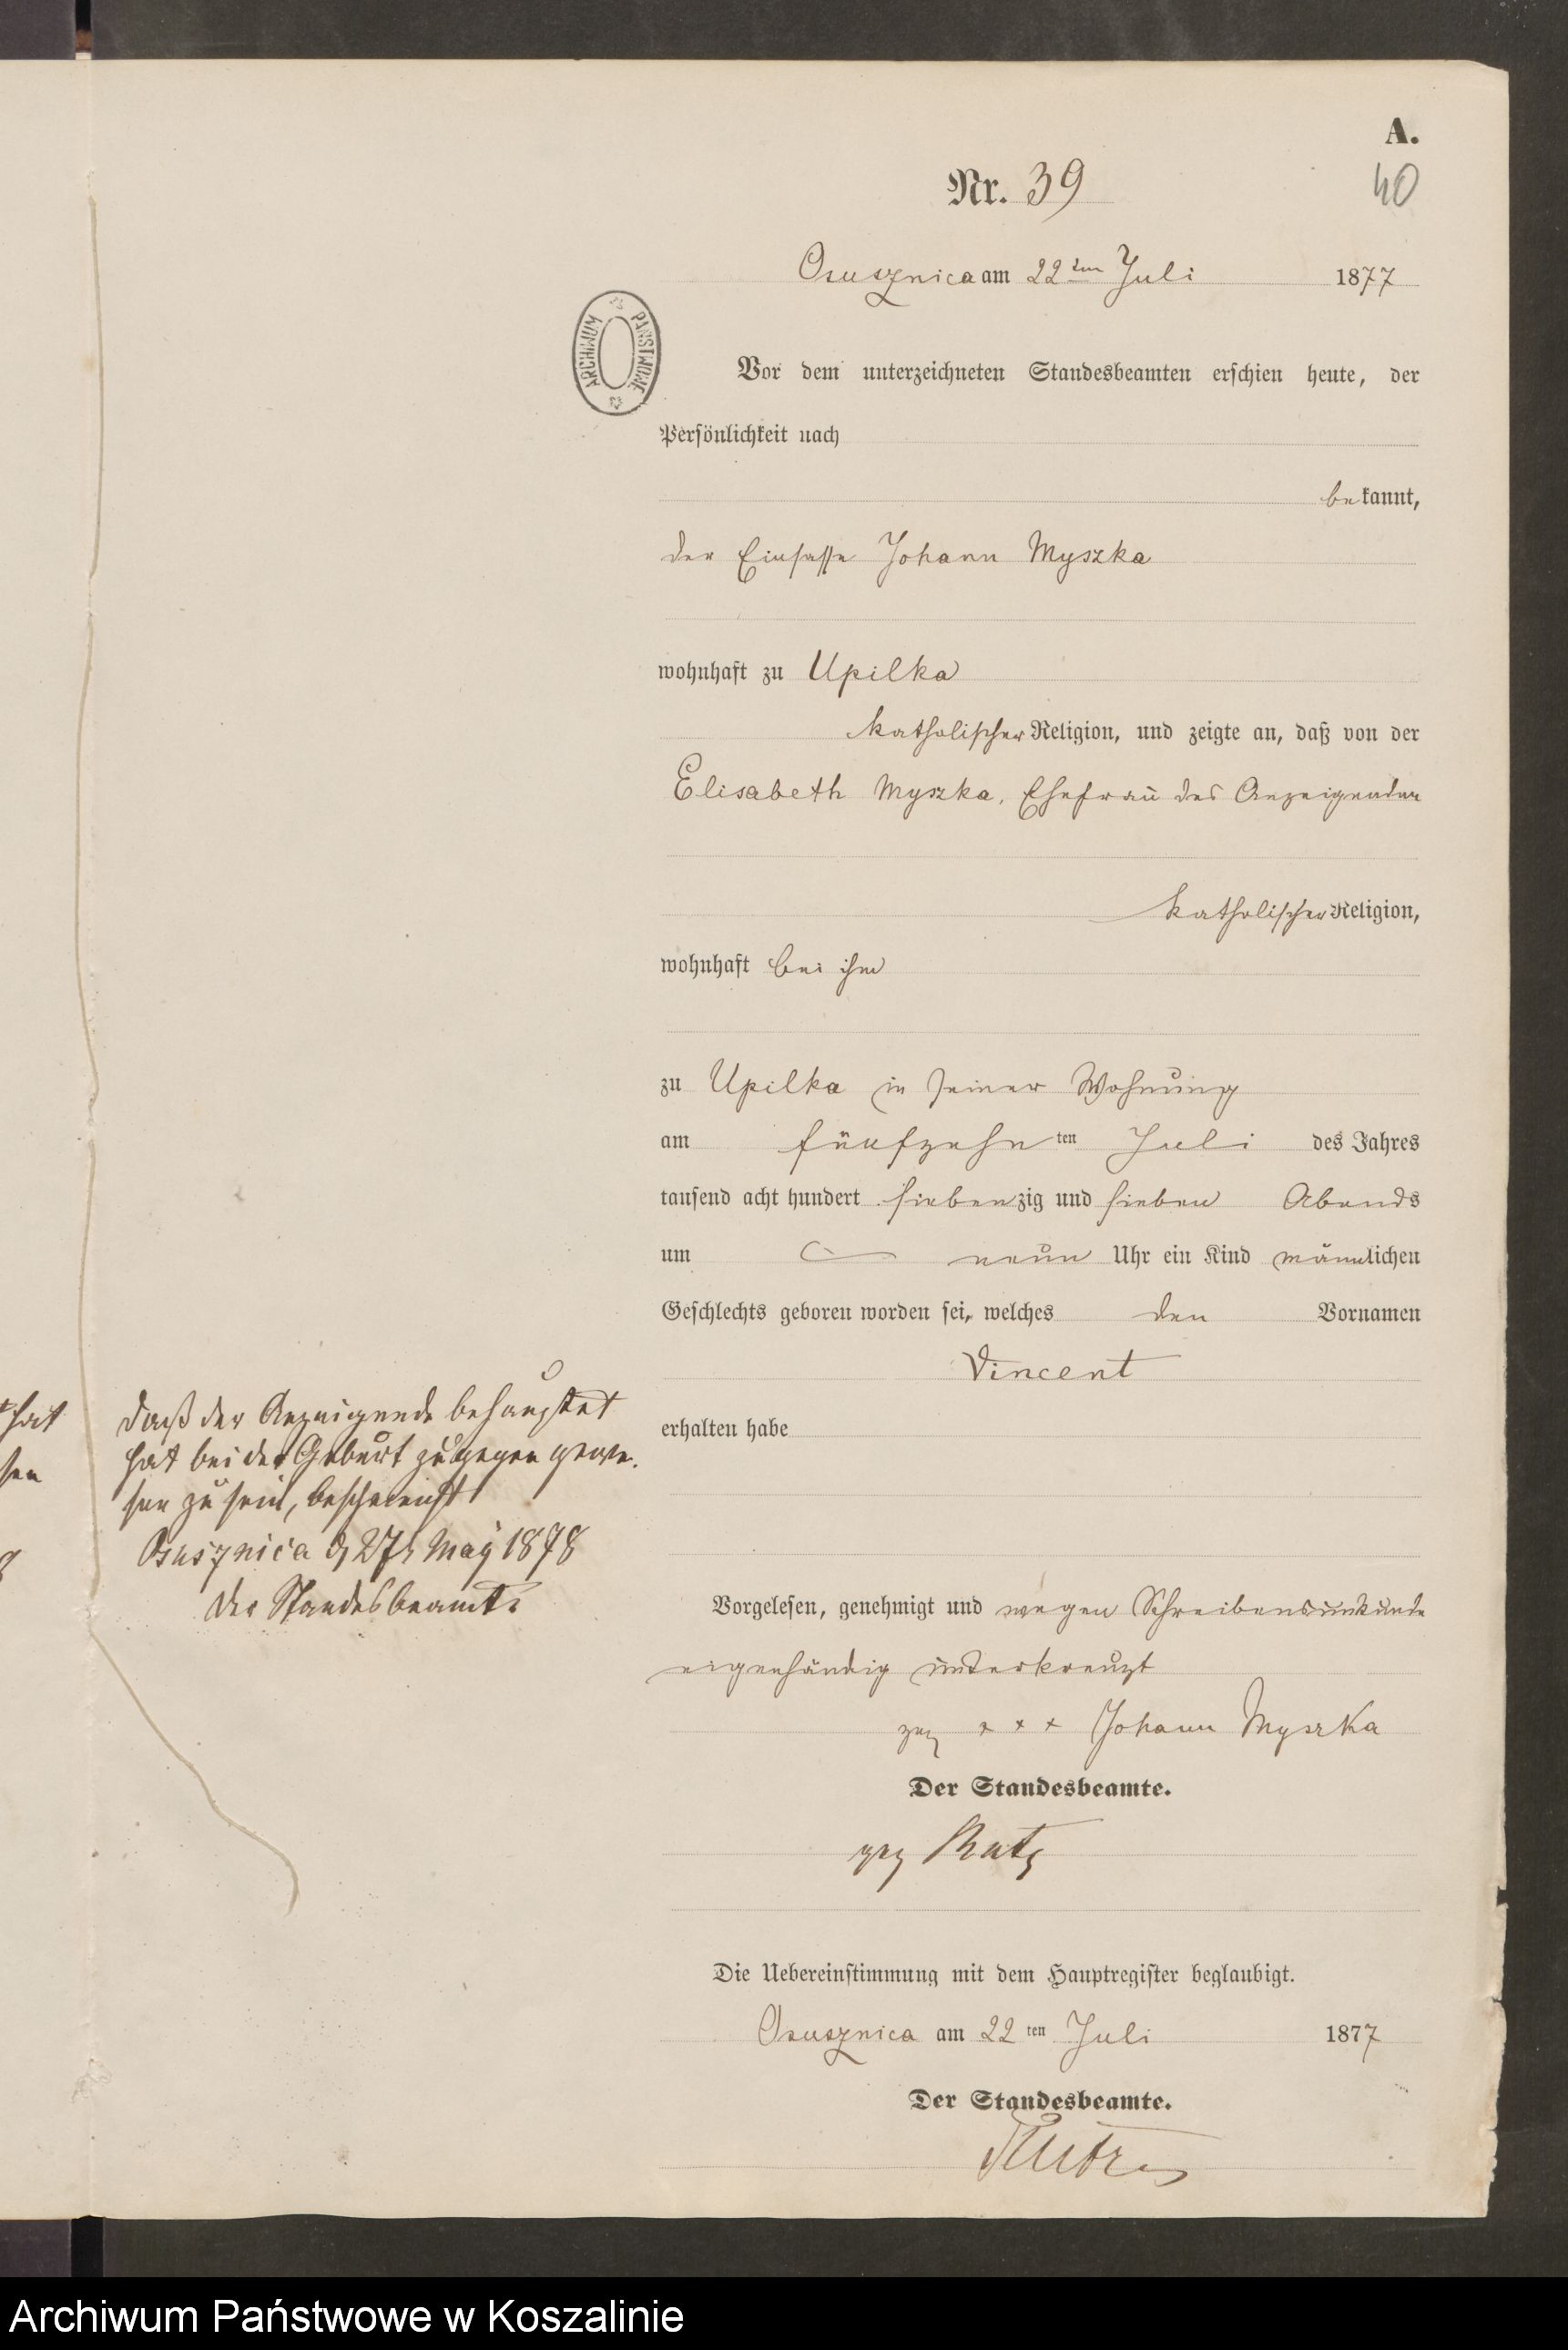 A.
Nr. 39
40
Osusznica am 22ten Juli 1877
ARCHIWUM PAŃSTWOWE
Vor dem unterzeichneten Standesbeamten erschien heute, der
Persönlichkeit nach
bekannt,
der Einsasse Johann Myszka
wohnhaft zu Upilka
katholischer Religion, und zeigte an, daß von der
Elisabeth Myszka, Ehefrau des Anzeigenden
katholischer Religion,
wohnhaft bei ihm
zu Upilka in seiner Wohnung
am fünfzehnten Juli des Jahres
tausend acht hundert siebenzig und sieben Abends
um neun Uhr ein Kind männlichen
Geschlechts geboren worden sei, welches den Vornamen
Vincent
erhalten habe
hat
sen
daß der Anzeigende behauptet
hat bei der Geburt zugegen gewe-
sen zu sein, bescheinigt
Osusznica d 27t May 1878
der Standesbeamte
Vorgelesen, genehmigt und wegen Schreibensunkunde
eigenhändig unterkreuzt
gez + + + Johann Myszka
Der Standesbeamte.
gez
Die Uebereinstimmung mit dem Hauptregister beglaubigt.
Osusznica am 22ten Juli 1877
Der Standesbeamte.
Archiwum Państwowe w Koszalinie